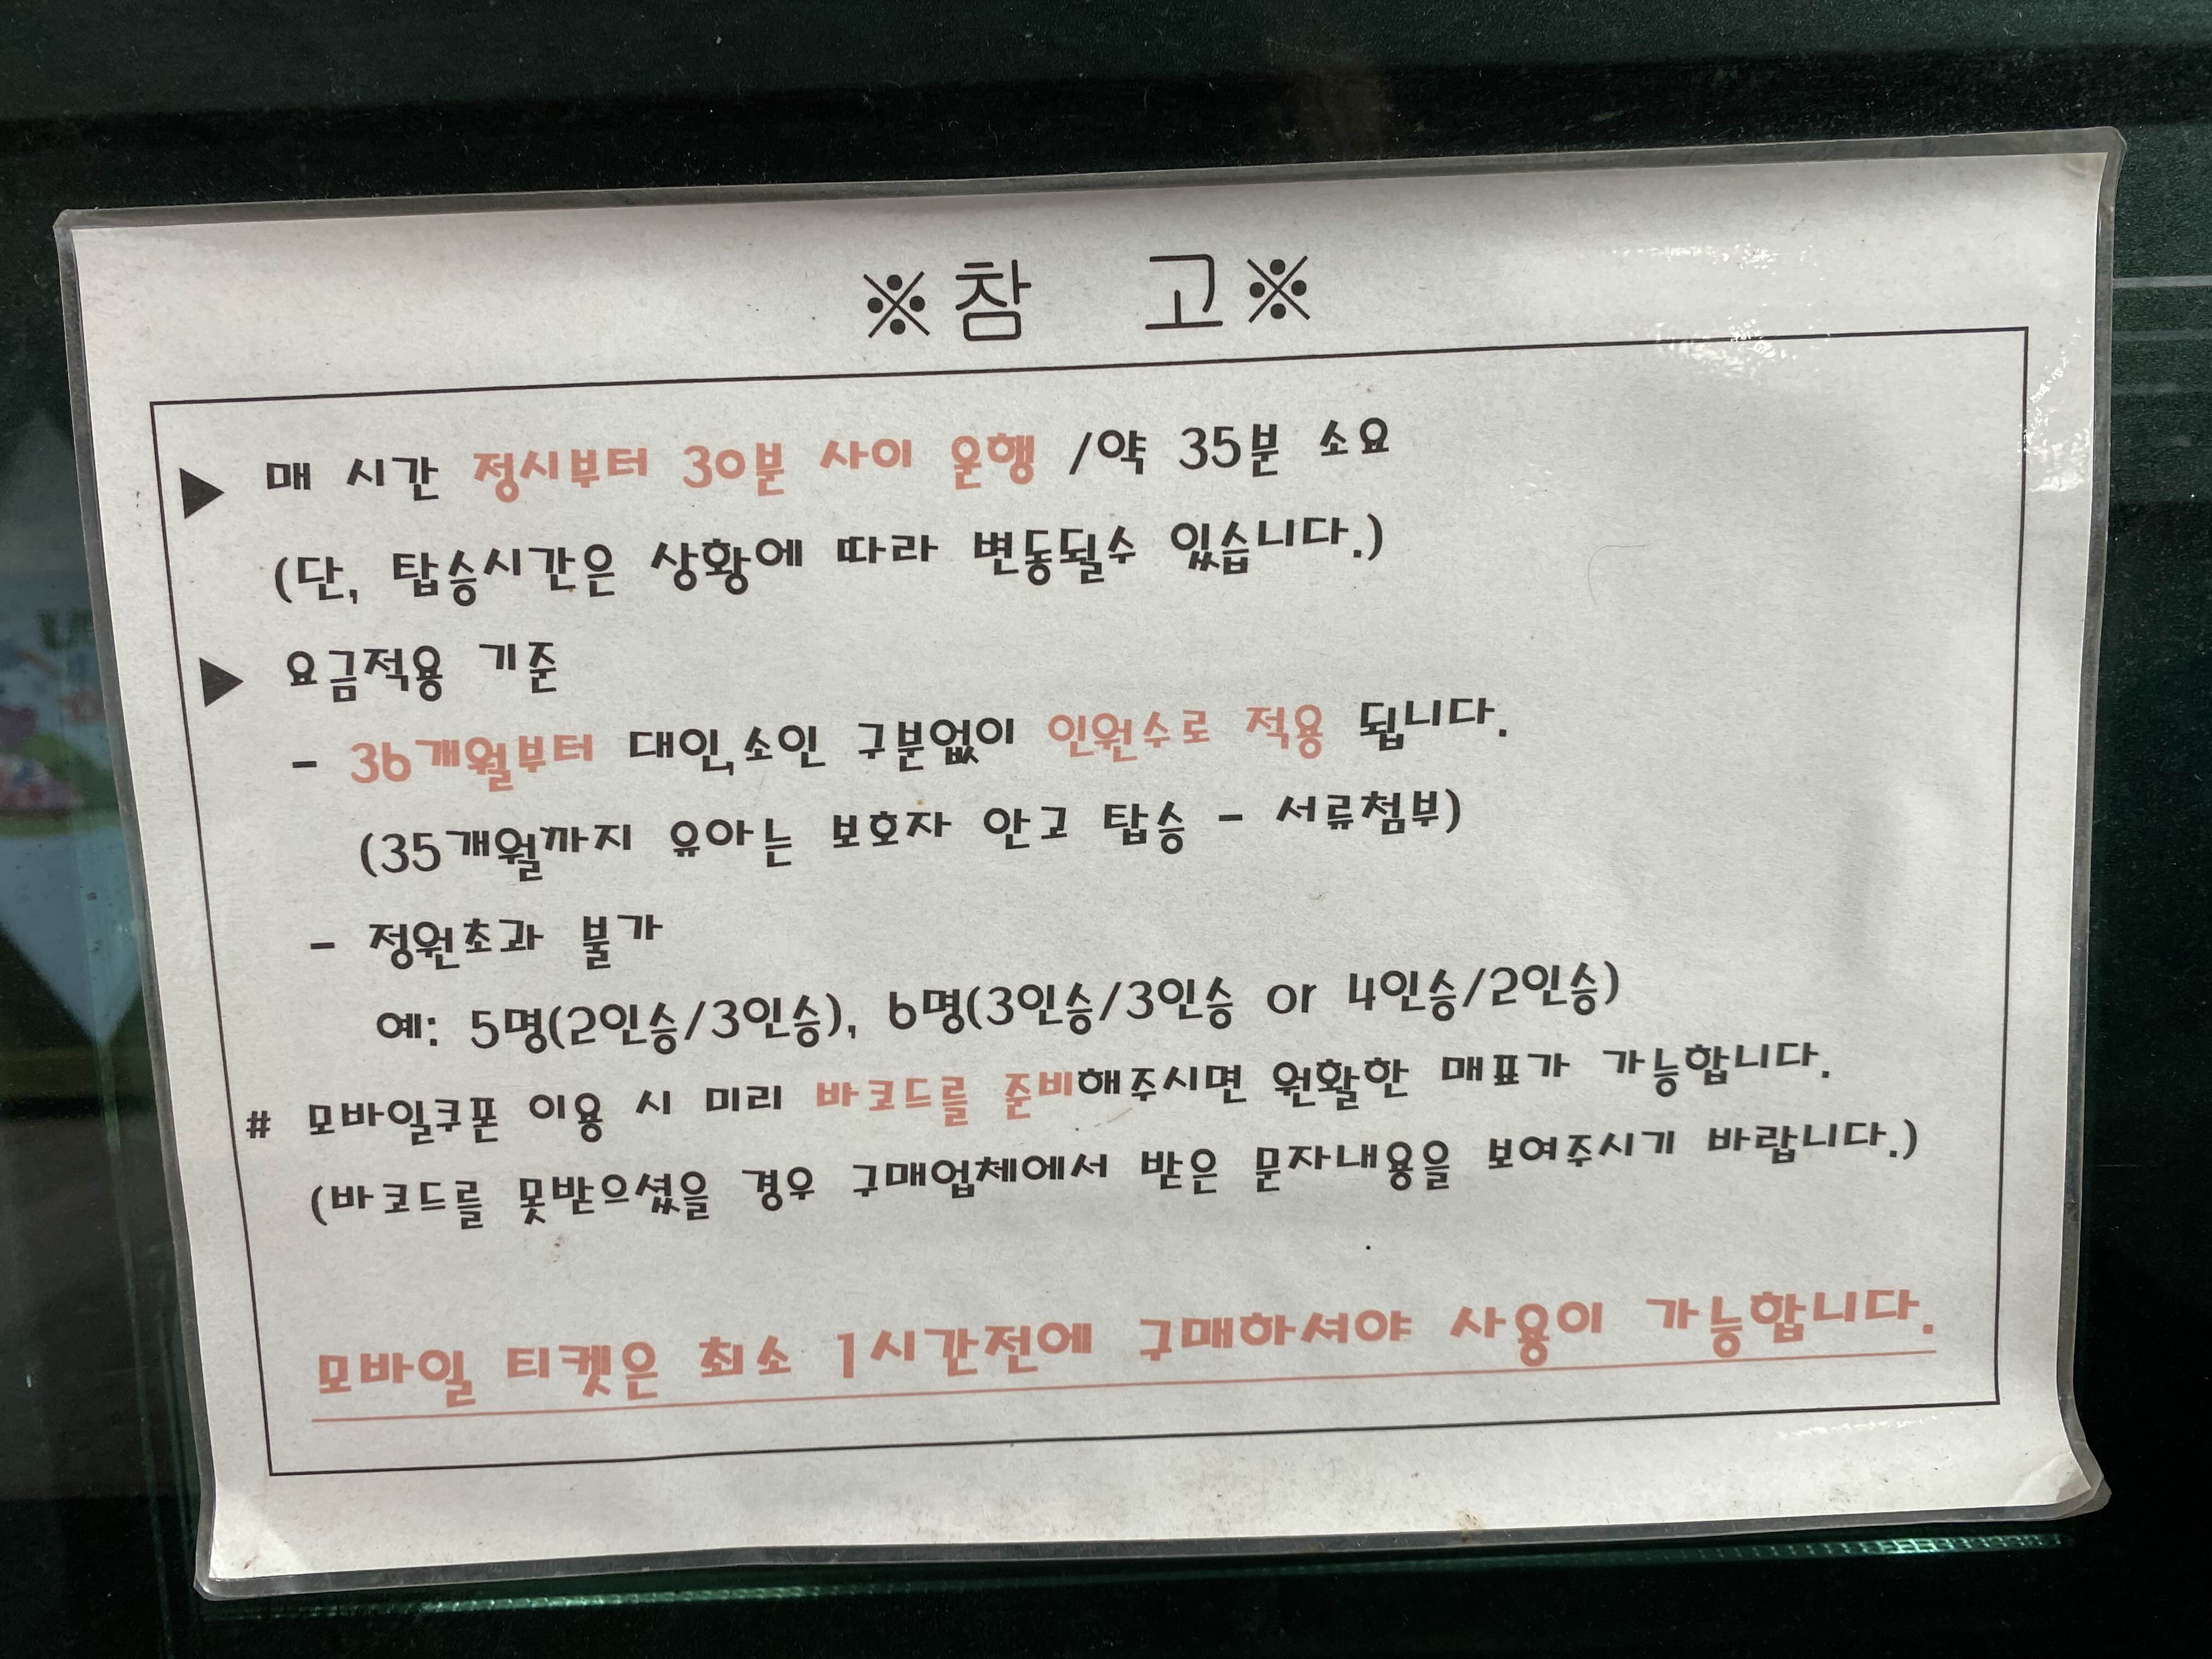 ※참 고※
▶ 매 시간 정시부터 30분 사이 운행 /약 35분 소요
(단, 탑승시간은 상황에 따라 변동될수 있습니다.)
▶ 요금적용 기준
- 36개월부터 대인,소인 구분없이 인원수로 적용 됩니다.
(35개월까지 유아는 보호자 안고 탑승 - 서류첨부)
- 정원초과 불가
예: 5명(2인승/3인승), 6명(3인승/3인승 or 4인승/2인승)
# 모바일쿠폰 이용 시 미리 바코드를 준비해주시면 원활한 매표가 가능합니다.
(바코드를 못받으셨을 경우 구매업체에서 받은 문자내용을 보여주시기 바랍니다.)
모바일 티켓은 최소 1시간전에 구매하셔야 사용이 가능합니다.